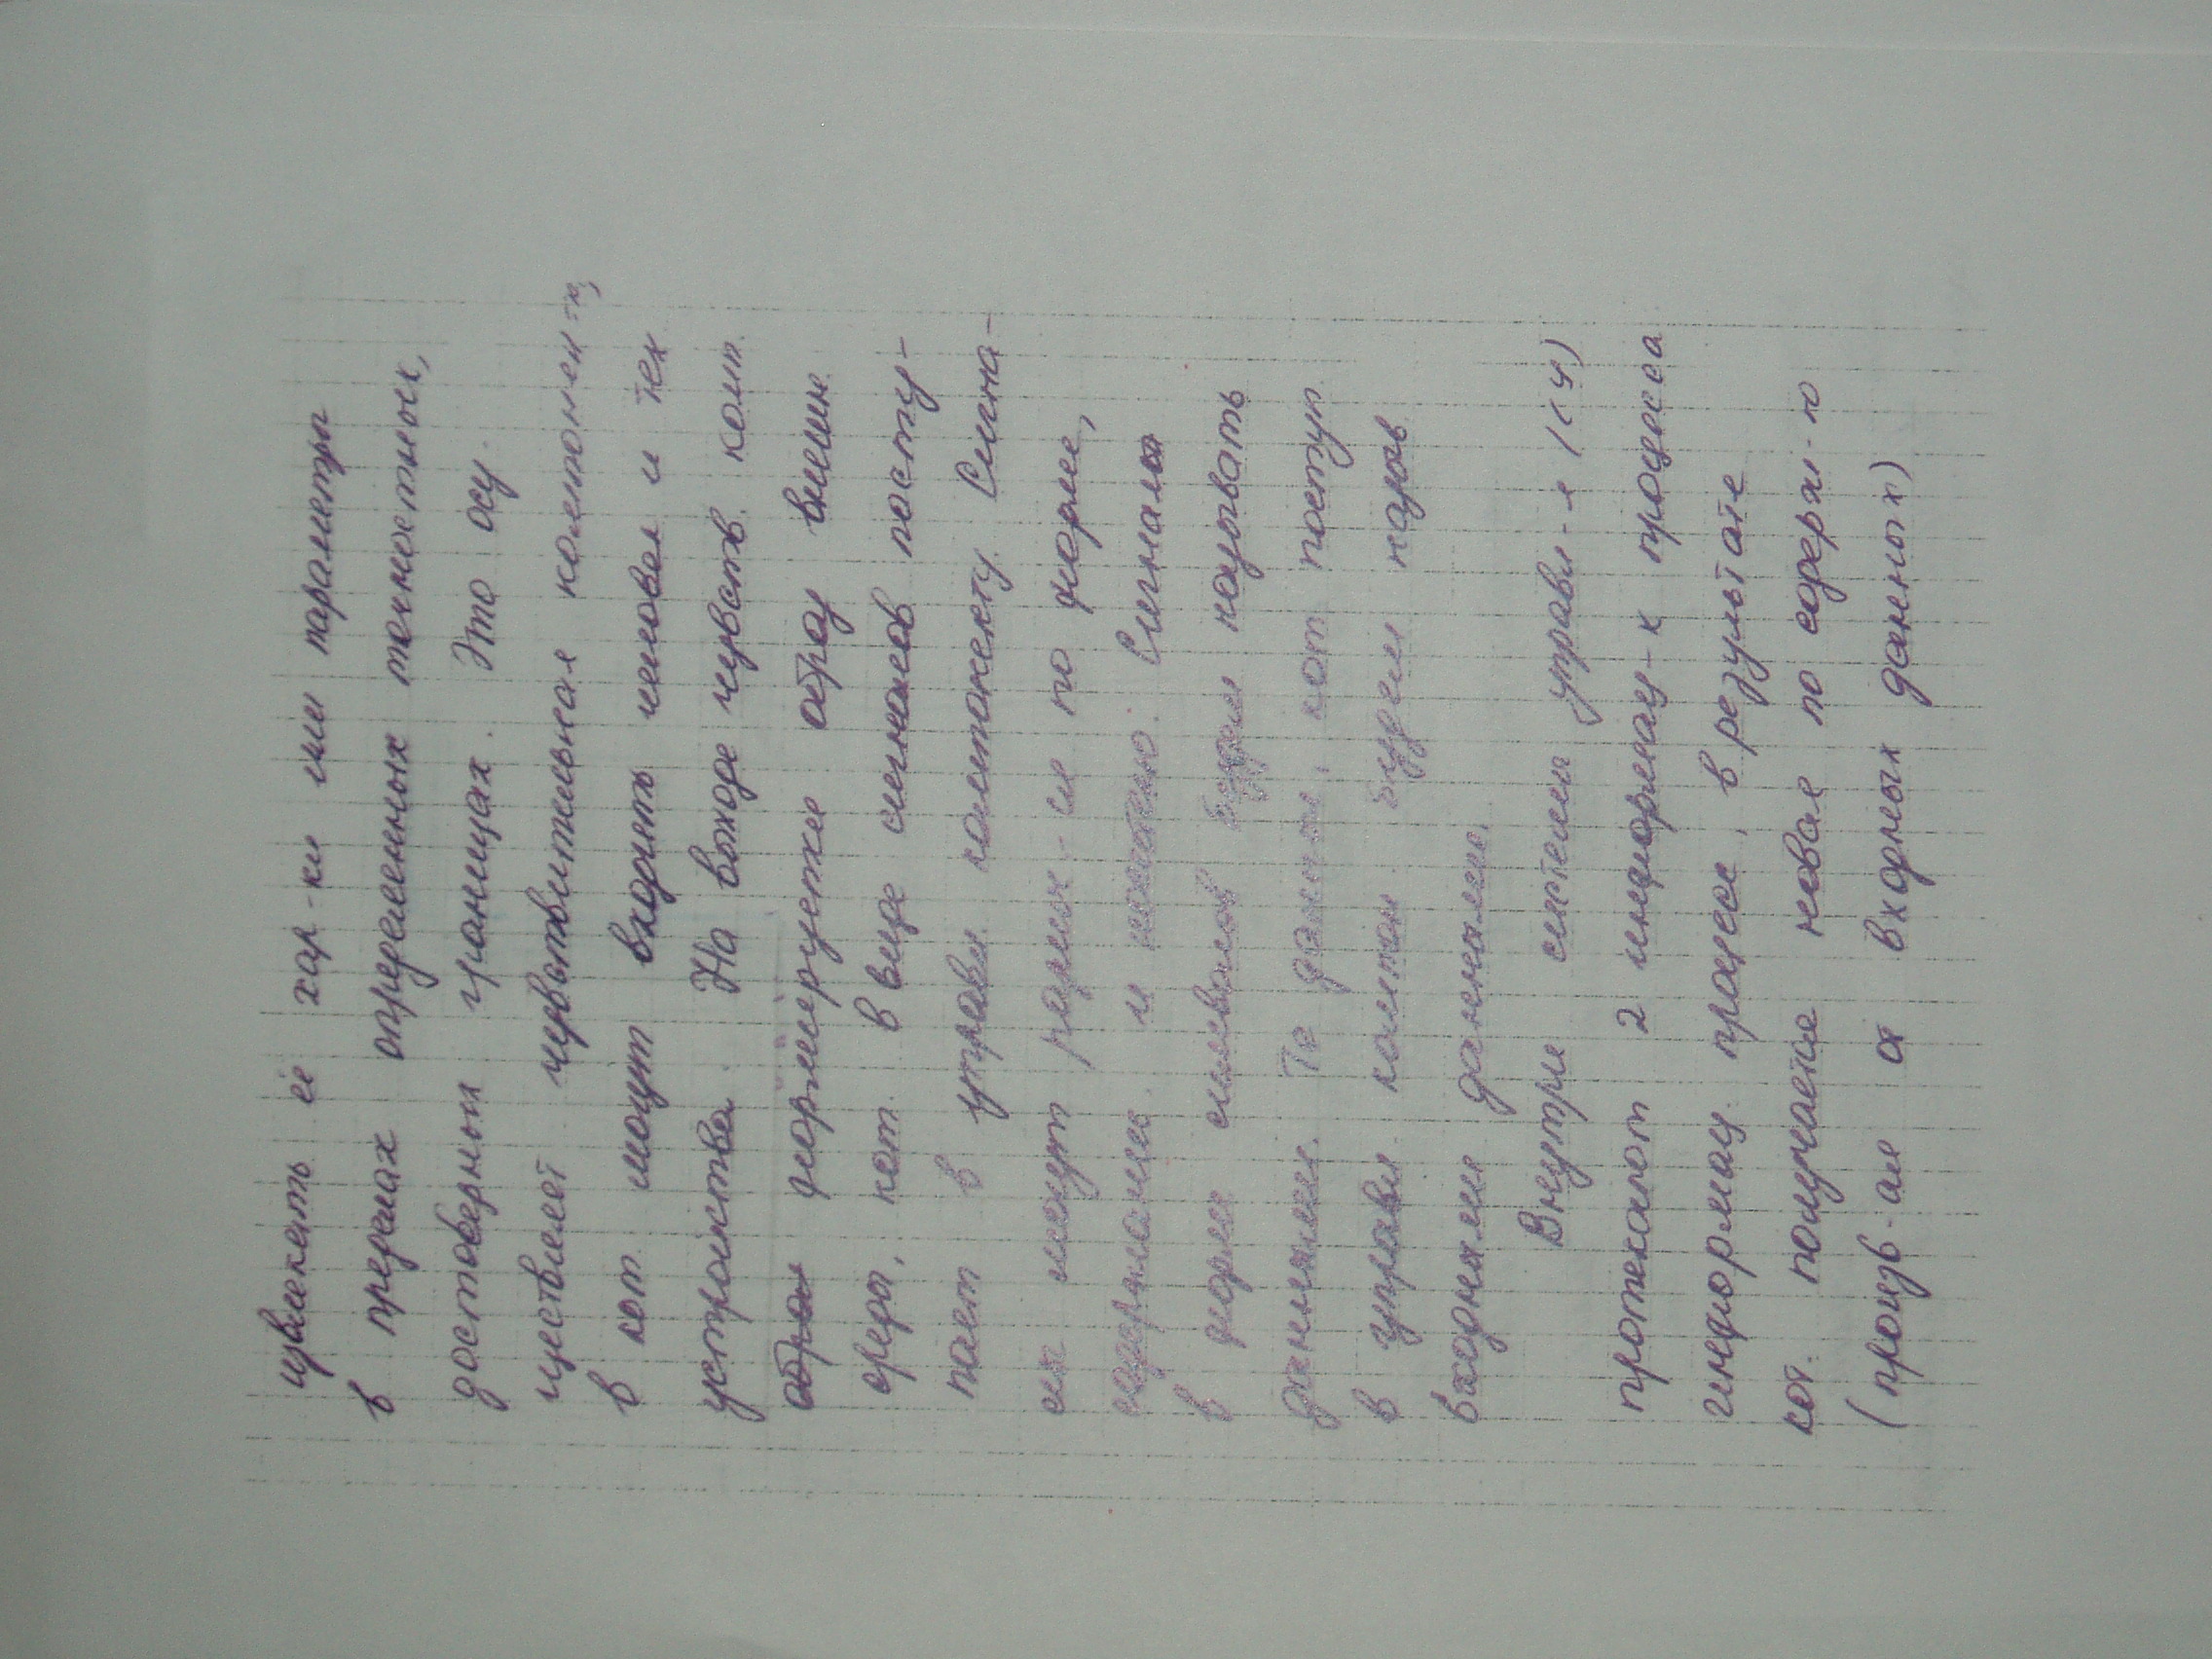 извлекать её хар-ки или параметры
в пределах определенных точностных,
достоверных границах. Это осу
ществляет чувствительная компонен-та,
в кот могут входить человек и тех
устройства. На выходе чувств. комп.
образ формируется образ внешн.
среды, кот. в виде сигналов посту-
пает в управл. компоненту. Сигна-
лы могут различ-ся по форме,
содержанию. и
Сигналы
в форме символов будем называть
данными. Те данные, кот поступ
в управл компон будем назыв
входными данными.
Внутри системы управл-я (СУ)
протекают 2 информац-х процесса
информац. процесс, в результате
кот. получается новая по содерж-ю
(произв-ая от входных данных)